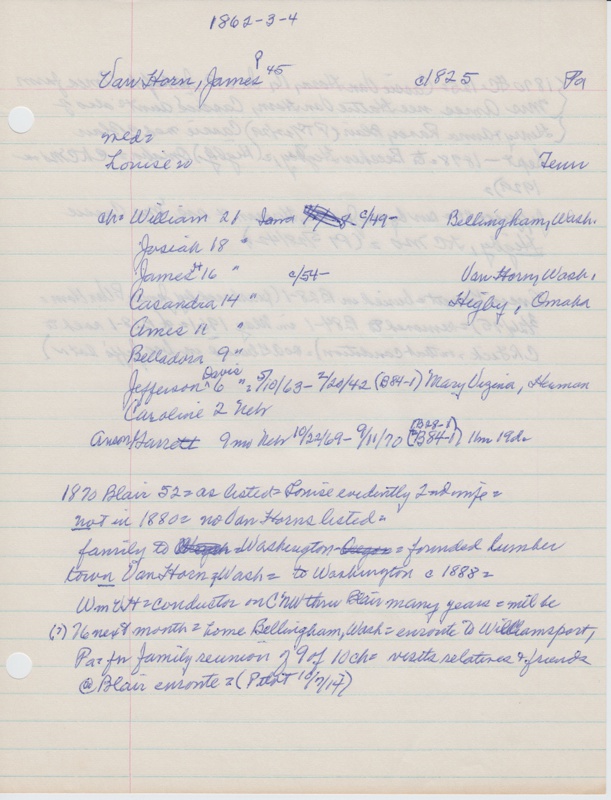 1862-3-4
Van Horn, James P 45 c/1825 Pa
med=
Louise= Tenn
ch= William 21 Iowa c/49- Bellingham, Wash.
Josiah 18 "
James H 16 " c/54- Van Horn, Wash.
Casandra 14 " Higby, Omaha
Ames 11 "
Belladora 9 "
Jefferson Davis 6 "= 5/10/63- 2/20/42 (B84-1) Mary Virginia, Herman
Caroline 2 Nebr
Anson/Garrett 9 mo Nebr 10/22/69- 9/11/70 (B28-1) (B84-1) 11m 19da
1870 Blair 52= as listed= Louise evidently 2nd wife=
not in 1880= no Van Horns listed=
family to Washington= founded lumber
town Van Horn, Wash= to Washington c 1888=
Wm VH= conductor on CNW thru Blair many years= will be
(?) 76 next month= home Bellingham, Wash= enroute to Williamsport,
Pa= for family reunion of 9 of 10 ch= visits relatives & friends
@ Blair enroute= (Pilot 10/7/14)